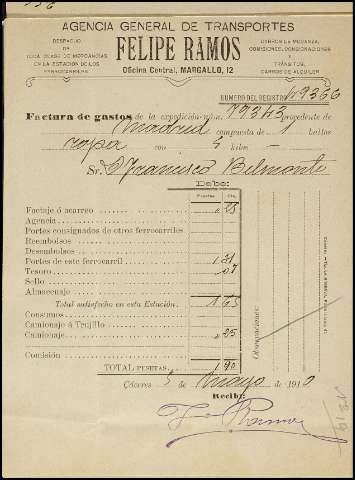 AGENCIA GENERAL DE TRANSPORTES
DESPACHO
DE
TODA CLASE DE MERCANCIAS
EN LA ESTACIÓN DE LOS
FERROCARRILES
FELIPE RAMOS
Oficina Central, MARGALLO, 12
CARROS DE MUDANZA,
COMISIONES, CONSIGNACIONES
Y
TRÁNSITOS,
CARROS DE ALQUILER
NÚMERO DEL REGISTRO 49366
Factura de gastos de la expedición núm. 79343 procedente de
Madrid compuesta de 1 bultos
ropa con 5 kilos
Sr. D Francisco Belmonte
Debe:
Pesetas Cts.
Factaje ó acarreo 25
Agencia
Portes consignados de otros ferrocarriles
Reembolsos
Desembolsos
Portes de este ferrocarril 1 31
Tesoro 07
Sello
Almacenaje
Total satisfecho en esta Estación. 1 65
Consumos
Camionaje á Trujillo
Camionaje 25
Comisión
TOTAL PESETAS. 1 90
Observaciones:
Cáceres 5 de Mayo de 1910
Recibí:
F Ramos